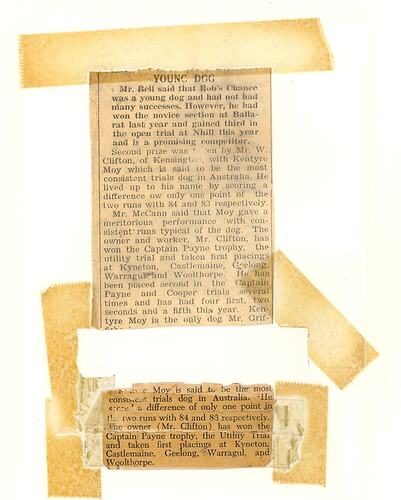 YOUNG DOG
Mr. Bell said that Rob's Chance
was a young dog and had not had
many successes. However, he had
won the novice section at Balla-
rat last year and gained third in
the open trial at Nhill this year
and is a promising competitor.
Second prize was taken by Mr. W.
Clifton, of Kensington, with Kentyre
Moy which is said to be the most
consistent trials dog in Australia. He
lived up to his name by scoring a
difference ow only one point of the
two runs with 84 and 83 respectively.
Mr. McCann said that Moy gave a
meritorious performance with con-
sistent runs typical of the dog. The
owner and worker, Mr. Clifton, has
won the Captain Payne trophy, the
utility trial and taken first placings
at Kyneton, Castlemaine, Geelong,
Warragul and Woolthorpe. He has
been placed second in the Captain
Payne and Cooper trials several
times and has had four first, two
seconds and a fifth this year. Ken-
tyre Moy is the only dog Mr. Grif-
Moy is said to be the most
consistent trials dog in Australia. He
a difference of only one point in
the two runs with 84 and 83 respectively.
The owner (Mr. Clifton) has won the
Captain Payne trophy, the Utility Trial
and taken first placings at Kyneton,
Castlemaine, Geelong, Warragul, and
Woolthorpe.